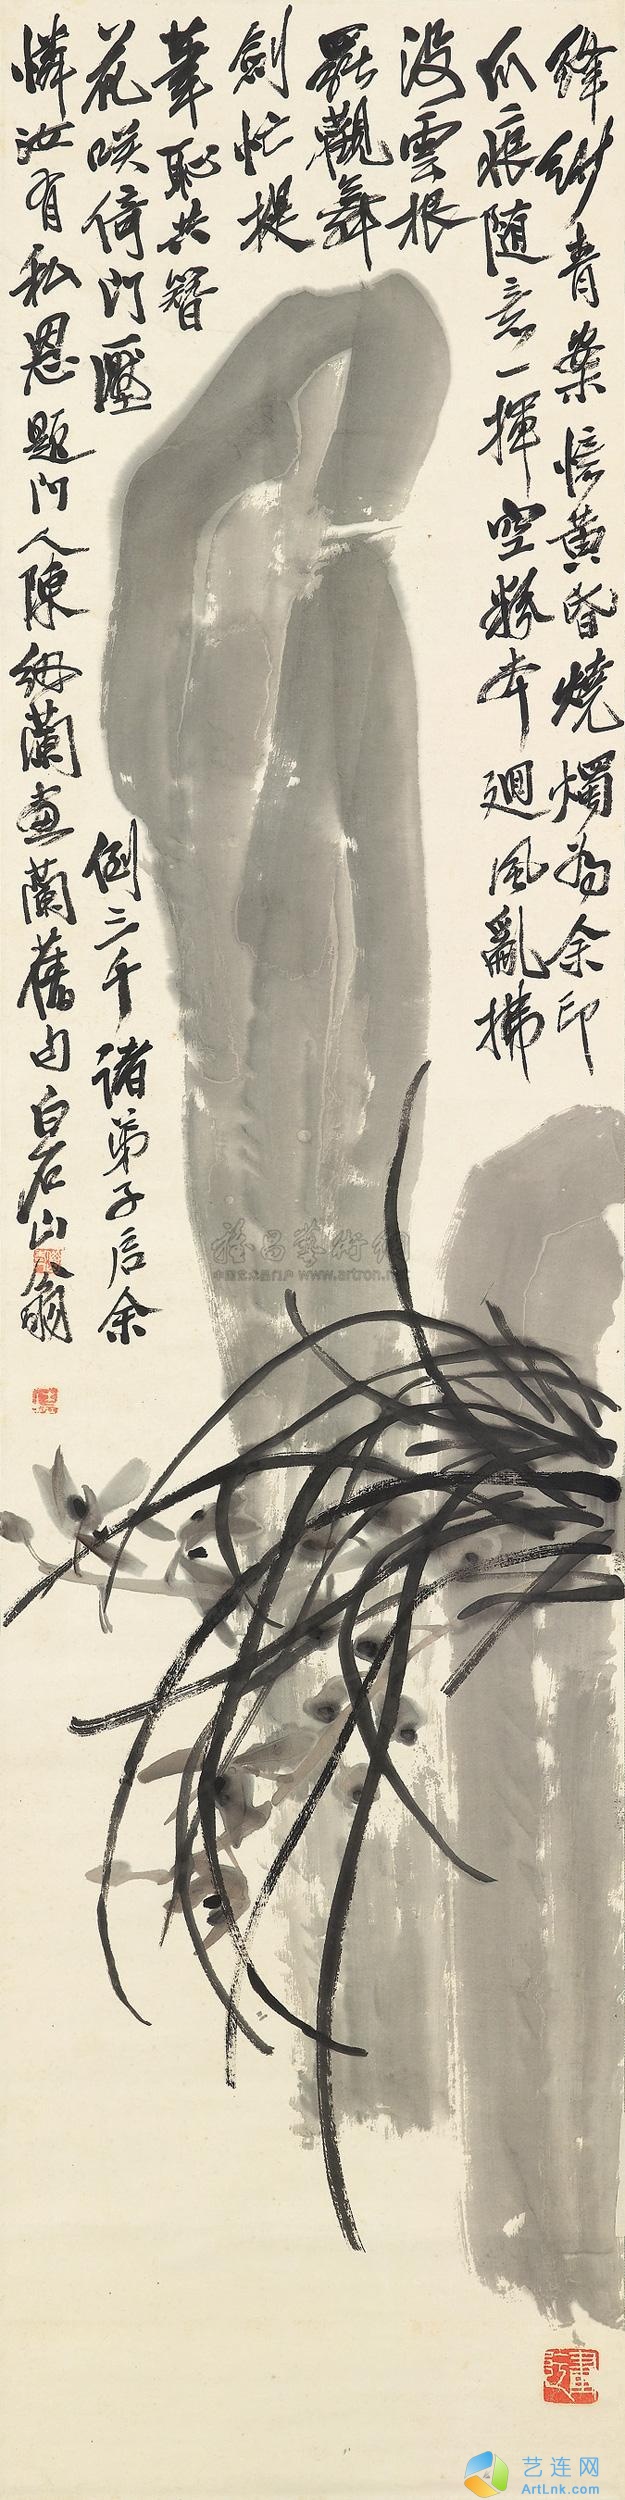 絳紗青案憶黃昏燒燭為余印
爪痕隨意一揮空粉本迴風亂拂
沒雲根
罷觀舞
劍忙提
筆恥共簪
花咲倚門壓
倒三千諸弟子言余
憐汝有私恩題門人陳紉蘭畫蘭舊句白石山翁
雅昌藝術網
www.artron.net
艺连网
ArtLnk.com